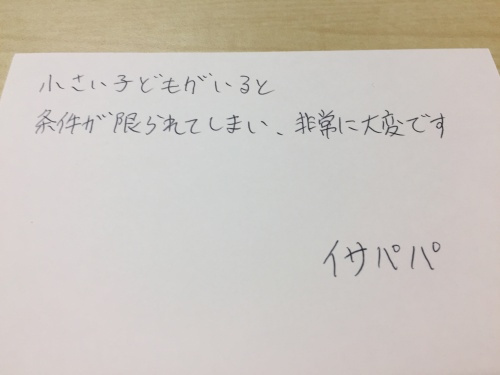 小さい子どもがいると
条件が限られてしまい、非常に大変です
イサパパ